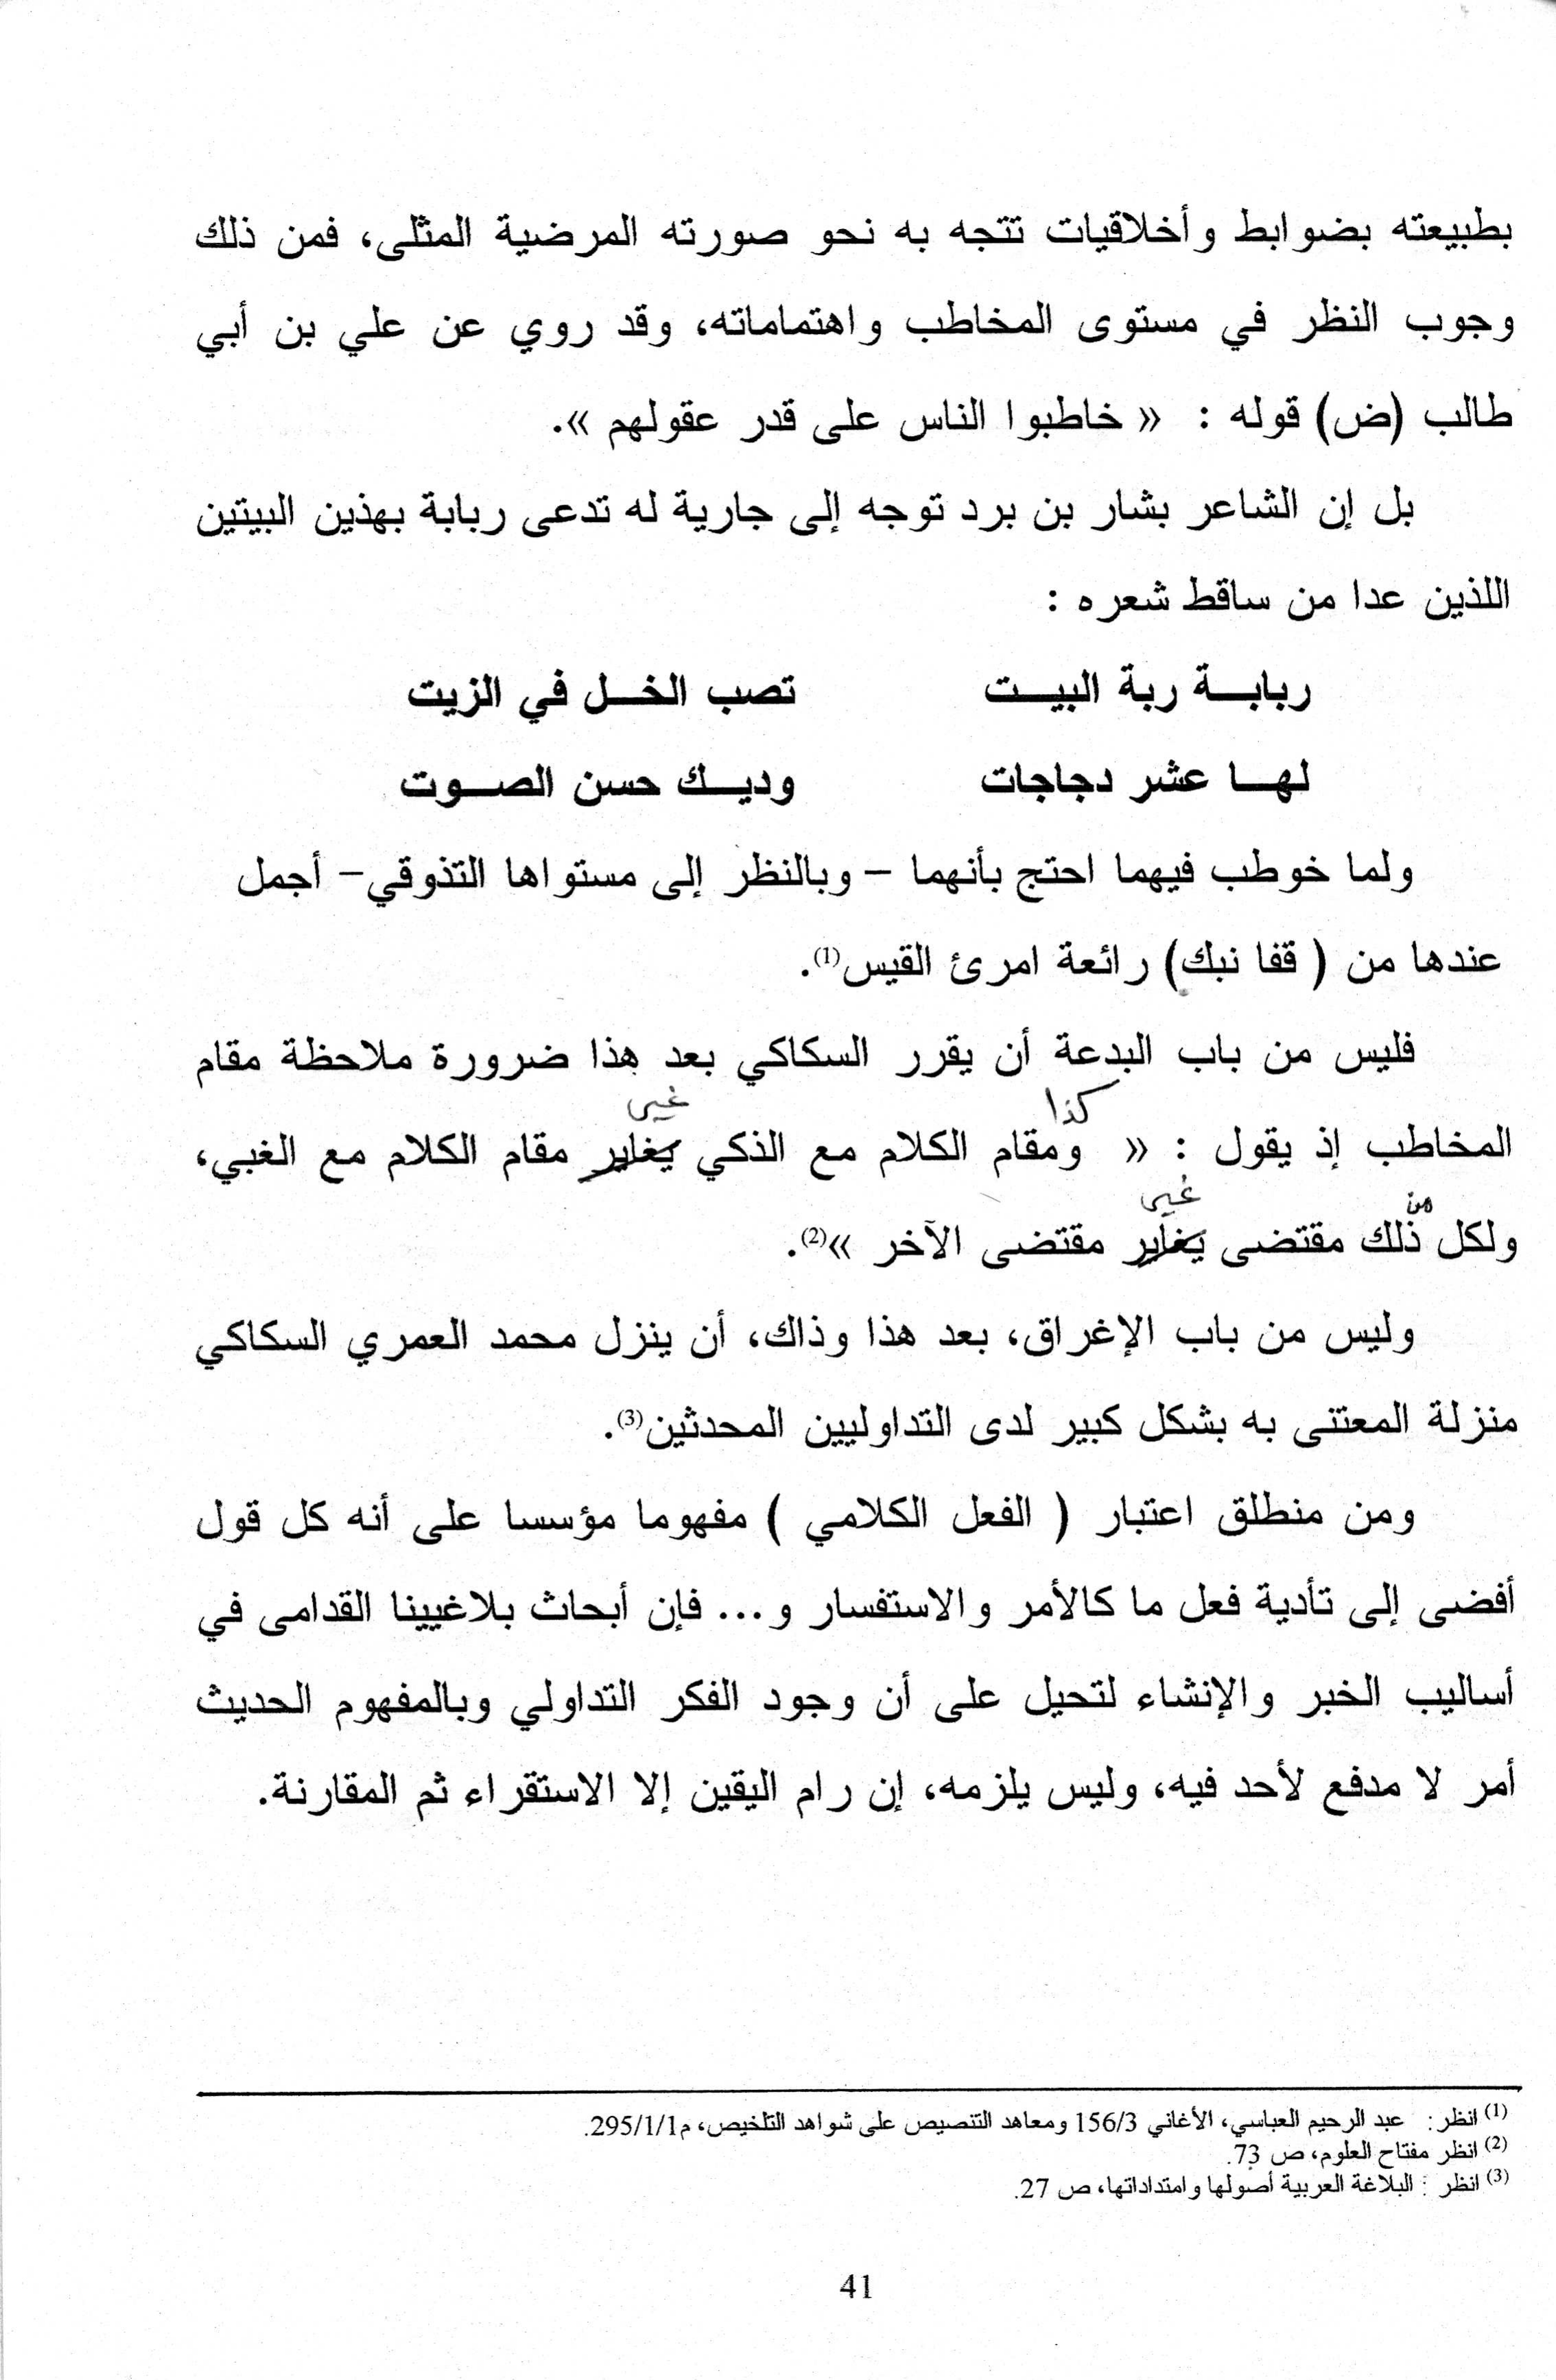 بطبيعته بضوابط وأخلاقيات تتجه به نحو صورته المرضية المثلى، فمن ذلك
وجوب النظر في مستوى المخاطب واهتماماته، وقد روي عن علي بن أبي
طالب (ض) قوله : « خاطبوا الناس على قدر عقولهم ».
بل إن الشاعر بشار بن برد توجه إلى جارية له تدعى ربابة بهذين البيتين
اللذين عدا من ساقط شعره :
ربابـــة ربة البيـــت تصب الخـــل في الزيت
لهـــا عشر دجاجات وديـــك حسن الصـــوت
ولما خوطب فيهما احتج بأنهما – وبالنظر إلى مستواها التذوقي– أجمل
عندها من ( قفا نبك) رائعة امرئ القيس(1).
فليس من باب البدعة أن يقرر السكاكي بعد هذا ضرورة ملاحظة مقام
كذا غير
المخاطب إذ يقول : « ومقام الكلام مع الذكي يغاير مقام الكلام مع الغبي،
من غير
ولكل ذلك مقتضى يغاير مقتضى الآخر »(2).
وليس من باب الإغراق، بعد هذا وذاك، أن ينزل محمد العمري السكاكي
منزلة المعتنى به بشكل كبير لدى التداوليين المحدثين(3).
ومن منطلق اعتبار ( الفعل الكلامي ) مفهوما مؤسسا على أنه كل قول
أفضى إلى تأدية فعل ما كالأمر والاستفسار و... فإن أبحاث بلاغيينا القدامى في
أساليب الخبر والإنشاء لتحيل على أن وجود الفكر التداولي وبالمفهوم الحديث
أمر لا مدفع لأحد فيه، وليس يلزمه، إن رام اليقين إلا الاستقراء ثم المقارنة.
(1) انظر: عبد الرحيم العباسي، الأغاني 156/3 ومعاهد التنصيص على شواهد التلخيص، م1/1/295.
(2) انظر مفتاح العلوم، ص 73.
(3) انظر : البلاغة العربية أصولها وامتداداتها، ص 27.
41